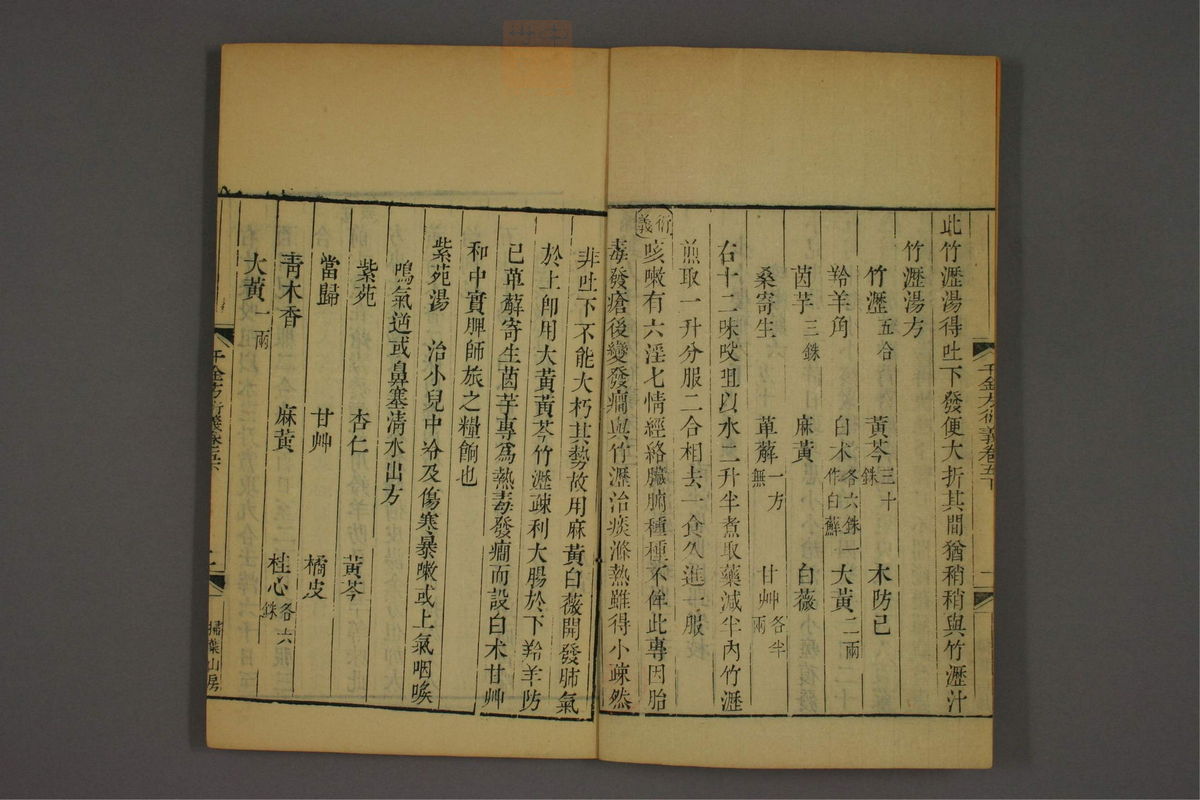 千金方衍義卷五下
此竹瀝湯得吐下發便大折其間猶稍稍與竹瀝汁
竹瀝湯方
竹瀝五合 黃芩三十銖 木防己
羚羊角 白朮各六銖一作白蘚 大黃二兩
茵芋三銖 麻黃 白薇
桑寄生 萆薢一方無 甘艸各半兩
右十二味㕮咀以水二升半煮取藥減半內竹瀝
煎取一升分服二合相去一食久進一服
衍義
咳嗽有六淫七情經絡臟腑種種不侔此專因胎
毒發瘡後變發癇與竹瀝治痰滌熱雖得小疎然
非吐下不能大朽其勢故用麻黃白薇開發肺氣
於上卽用大黃黃芩竹瀝疎利大腸於下羚羊防
已萆薢寄生茵芋專爲熱毒發癇而設白朮甘艸
和中實脾師旅之糧餉也
紫苑湯 治小兒中冷及傷寒暴嗽或上氣咽喉
鳴氣逆或鼻塞清水出方
紫苑 杏仁 黃芩
當歸 甘艸 橘皮
青木香 麻黃 桂心各六銖
大黃一兩
千金方衍義卷五下
掃葉山房